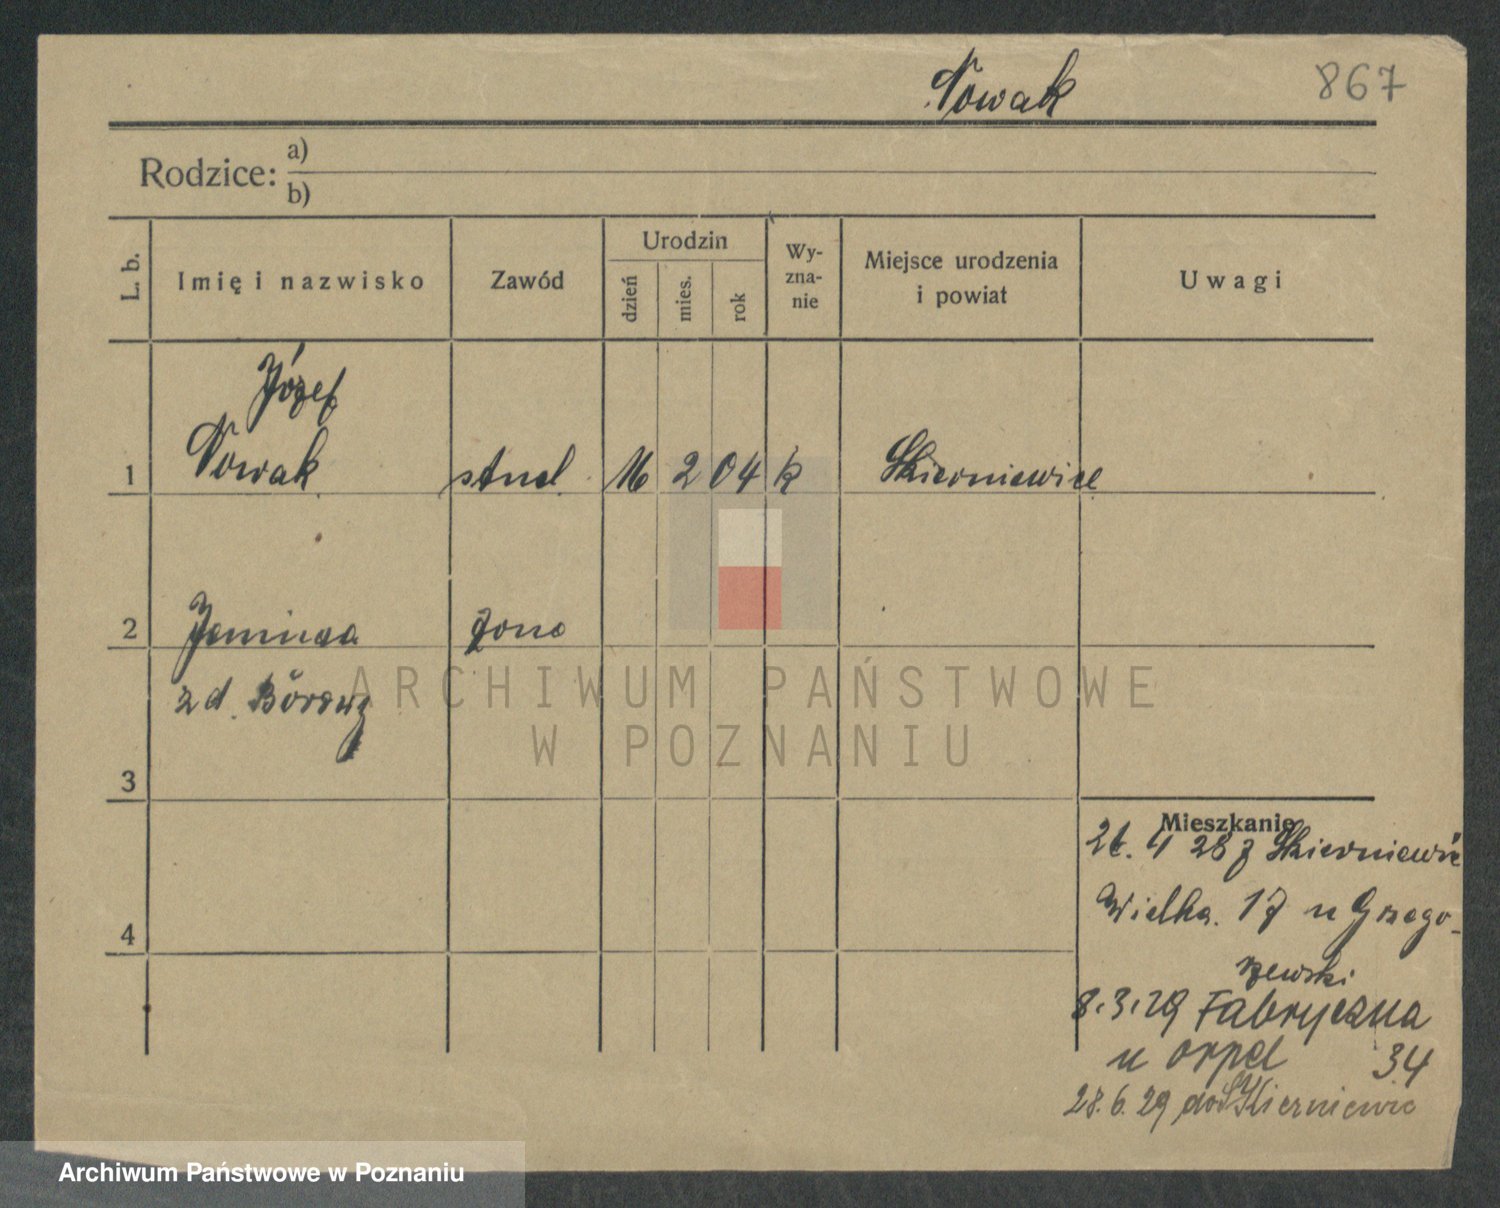 Nowak
867
Rodzice: a)
b)
L. b.
Imię i nazwisko
Zawód
Urodzin
dzień
mies.
rok
Wy-
zna-
nie
Miejsce urodzenia
i powiat
Uwagi
Józef
1 Nowak stud 16 2 04 k Skierniewice
2 Janina żona
z d.
3
4
Mieszkanie
4 28 z Skierniewic
Wielka. 17 u Grzego-
rzewski
8.3.29 Fabryczna
u 34
28.6.29 do Skierniewic
ARCHIWUM PAŃSTWOWE
W POZNANIU
Archiwum Państwowe w Poznaniu